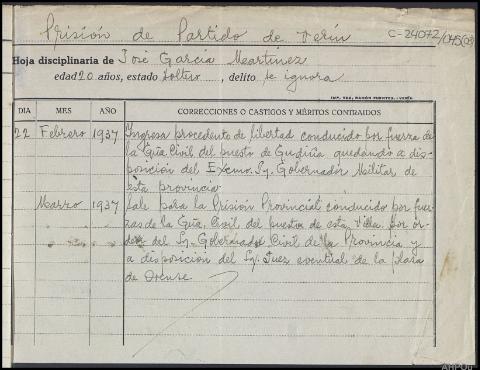 Prisión de Partido de Verín
C-24072/045(03)
Hoja disciplinaria de José García Martínez
edad 20 años, estado soltero, delito se ignora
IMP. VDA. RAMÓN FUENTES.-VERÍN
DIA MES AÑO CORRECCIONES O CASTIGOS Y MÉRITOS CONTRAIDOS
22 Febrero 1937 Ingresa procedente de libertad conducido por fuerza de
la Gúa Civil del puesto de Gudiña quedando a dis-
posición del Excmo. Sr. Gobernador Militar de
esta provincia
Marzo 1937 Sale para la Prisión Provincial conducido por fuer-
zas de la Gúa. Civil del puesto de esta Villa. Por or-
den del Sr. Gobernador Civil de la Provincia y
a disposición del Sr. Juez eventual de la plaza
de Orense
AHPOu